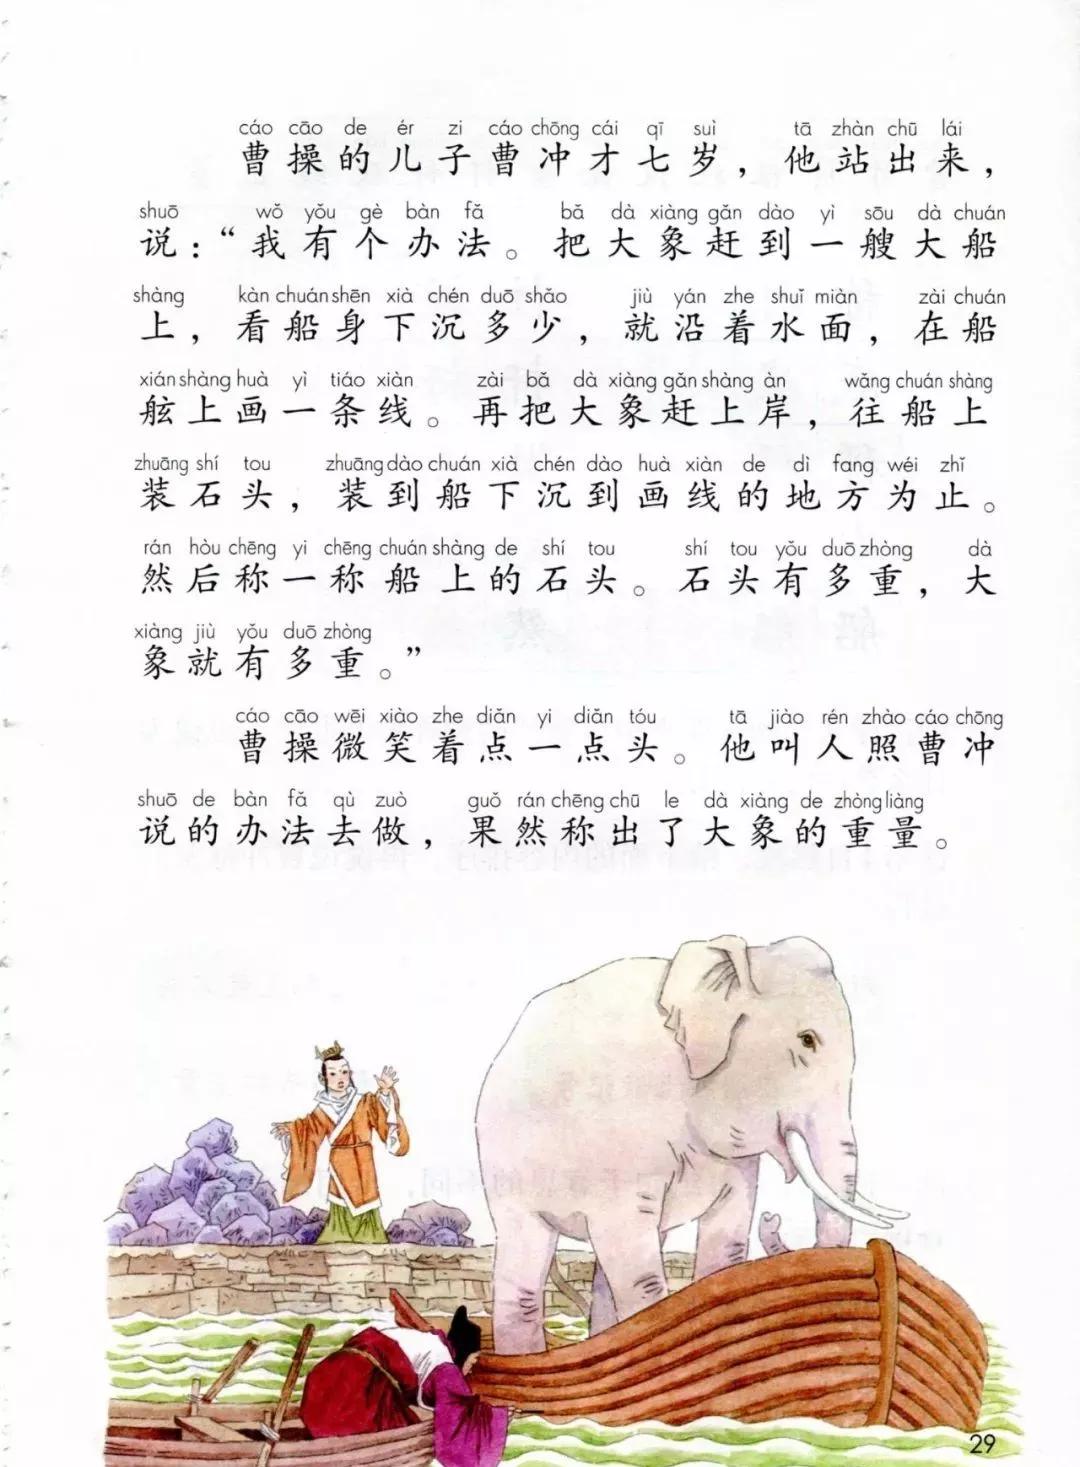 cáo cāo de ér zi cáo chōng cái qī suì tā zhàn chū lái
曹操的儿子曹冲才七岁，他站出来，
shuō wǒ yǒu gè bàn fǎ bǎ dà xiàng gǎn dào yì sōu dà chuán
说：“我有个办法。把大象赶到一艘大船
shàng kàn chuán shēn xià chén duō shǎo jiù yán zhe shuǐ miàn zài chuán
上，看船身下沉多少，就沿着水面，在船
xián shàng huà yì tiáo xiàn zài bǎ dà xiàng gǎn shàng àn wǎng chuán shàng
舷上画一条线。再把大象赶上岸，往船上
zhuāng shí tou zhuāng dào chuán xià chén dào huà xiàn de dì fang wéi zhǐ
装石头，装到船下沉到画线的地方为止。
rán hòu chēng yi chēng chuán shàng de shí tou shí tou yǒu duō zhòng dà
然后称一称船上的石头。石头有多重，大
xiàng jiù yǒu duō zhòng
象就有多重。”
cáo cāo wēi xiào zhe diǎn yi diǎn tóu tā jiào rén zhào cáo chōng
曹操微笑着点一点头。他叫人照曹冲
shuō de bàn fǎ qù zuò guǒ rán chēng chū le dà xiàng de zhòng liàng
说的办法去做，果然称出了大象的重量。
29